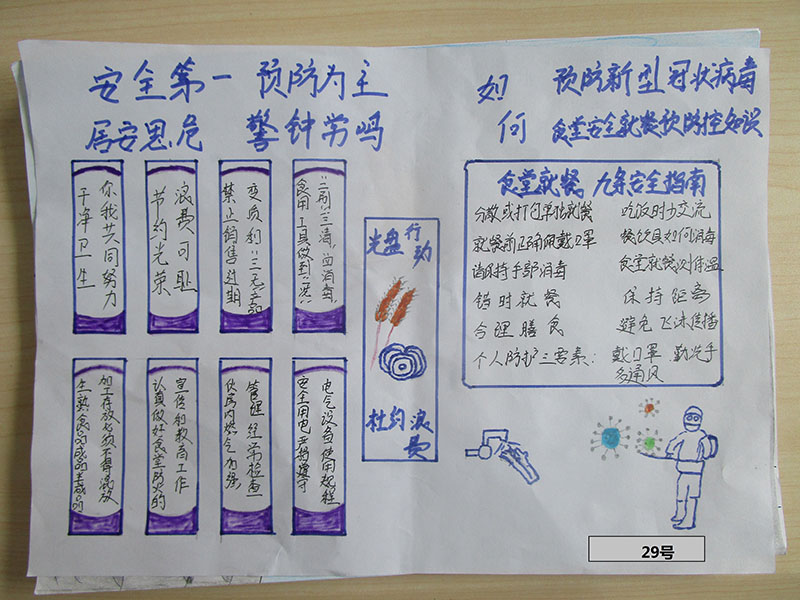 安全第一 预防为主
居安思危 警钟常鸣
干净卫生
你我共同努力
节约光荣
浪费可耻
禁止销售过期
变质和"三无"产品
食用工具做到"一洗
二刷三清四消毒"
生熟食品成品半成品
加工存放必须不得混放
认真做好食堂防火的
宣传和教育工作
伙房内燃气
管理经常检查
安全用电严格遵守
电气设备使用规程
光盘行动
杜约浪费
如何
预防新型冠状病毒
食堂安全就餐预防控知识
食堂就餐 九条安全指南
分散或打包单独就餐
就餐前正确佩戴口罩
请保持手部消毒
错时就餐
合理膳食
吃饭时少交流
餐饮具如何消毒
食堂就餐测体温
保持距离
避免飞沫传播
个人防护三要素：戴口罩 勤洗手
多通风
29号